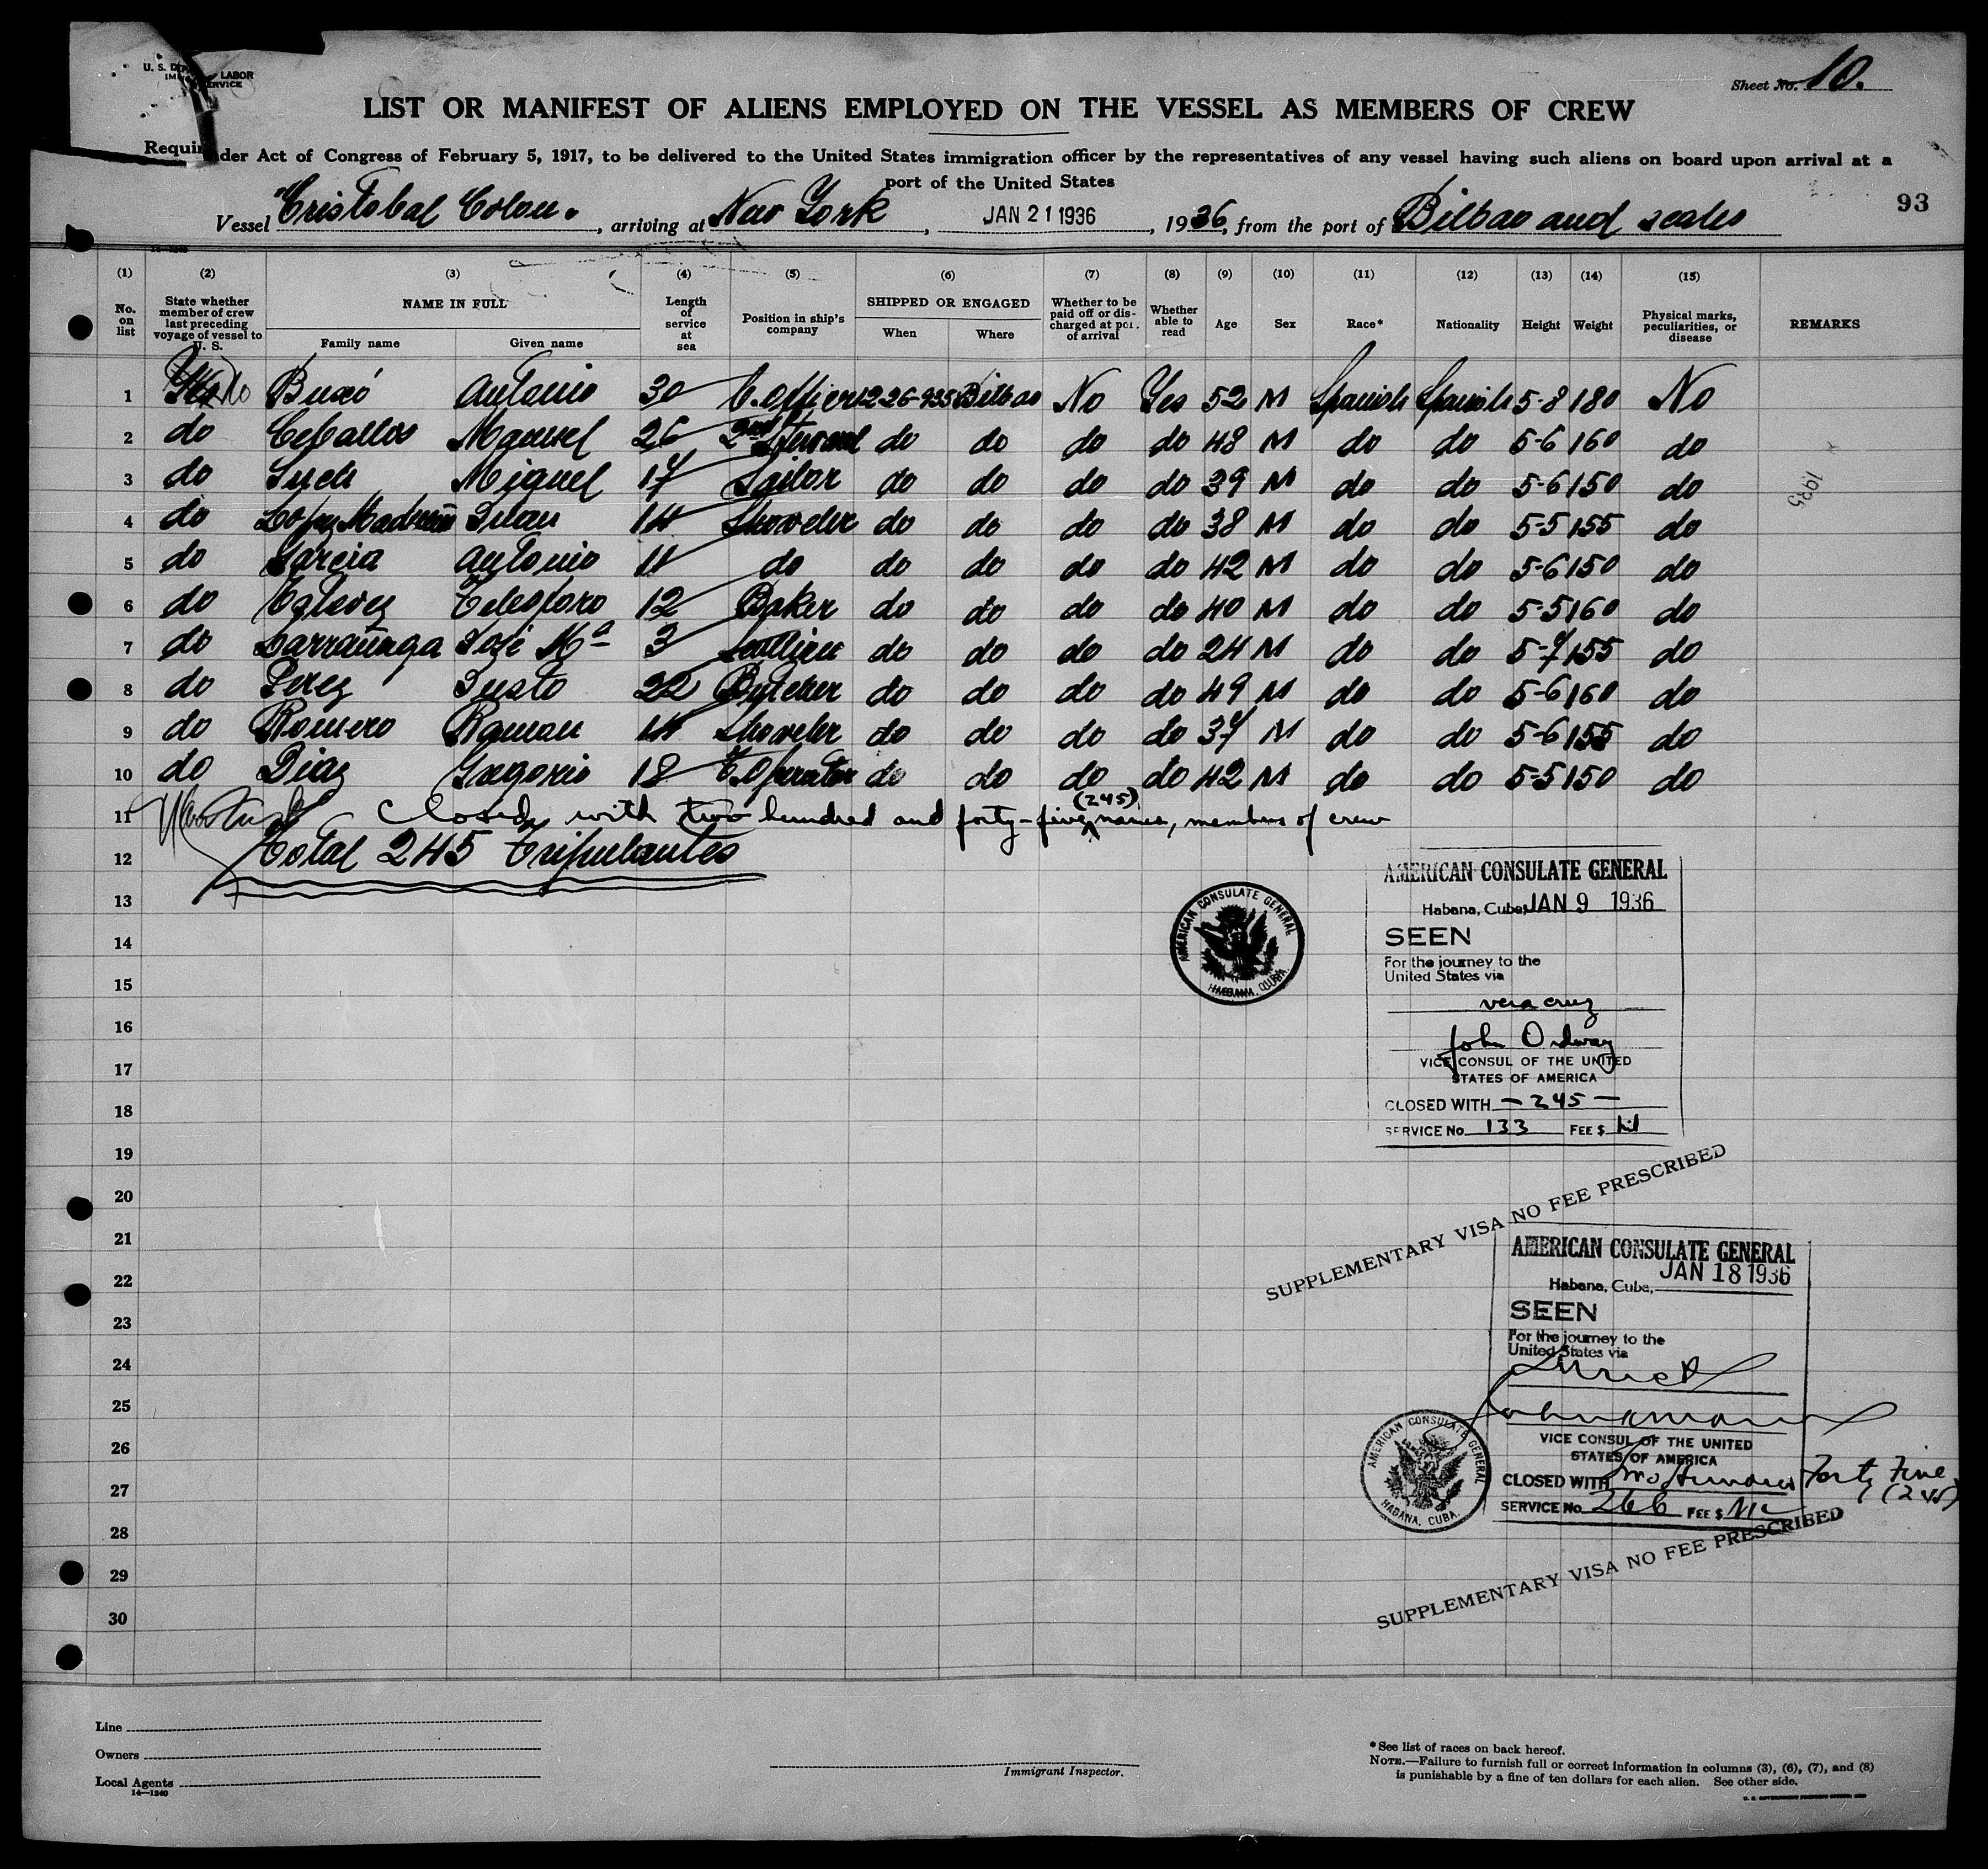 U. S. DEP LABOR
IM SERVICE
Sheet No. 10.
LIST OR MANIFEST OF ALIENS EMPLOYED ON THE VESSEL AS MEMBERS OF CREW
Requir der Act of Congress of February 5, 1917, to be delivered to the United States immigration officer by the representatives of any vessel having such aliens on board upon arrival at a
port of the United States
93
Vessel "Cristobal Colon", arriving at New York, JAN 21 1936, 1936, from the port of Bilbao and scales
14—1240
(1) (2) (3) (4) (5) (6) (7) (8) (9) (10) (11) (12) (13) (14) (15)
No. on list
State whether member of crew last preceding voyage of vessel to U. S.
NAME IN FULL
Family name Given name
Length of service at sea
Position in ship's company
SHIPPED OR ENGAGED
When Where
Whether to be paid off or discharged at port of arrival
Whether able to read
Age Sex Race* Nationality Height Weight
Physical marks, peculiarities, or disease
REMARKS
1 Yes No Buxó Antonio 30 C. Officer 12-26-935 Bilbao No Yes 52 M Spanish Spanish 5-8 180 No
2 do Ceballos Manuel 26 2nd Steward do do do do 48 M do do 5-6 160 do
3 do Miguel 17 Sailor do do do do 39 M do do 5-6 150 do
4 do Juan 14 Shoveler do do do do 38 M do do 5-5 155 do
5 do Garcia Antonio 11 do do do do do 42 M do do 5-6 150 do
6 do Telesforo 12 Baker do do do do 40 M do do 5-5 160 do
7 do Larrañaga José Mª 3 Scullion do do do do 24 M do do 5-7 155 do
8 do Perez Justo 22 Butcher do do do do 49 M do do 5-6 160 do
9 do Romero Ramon 14 Shoveler do do do do 37 M do do 5-6 155 do
10 do Diaz Gregorio 18 T. Operator do do do do 42 M do do 5-5 150 do
1935
11 Closed, with two hundred and forty-five (245) names, members of crew
12 Total 245 Tripulantes
13
14
15
16
17
18
19
20
21
22
23
24
25
26
27
28
29
30
AMERICAN CONSULATE GENERAL
HABANA, CUBA.
AMERICAN CONSULATE GENERAL
Habana, Cuba, JAN 9 1936
SEEN
For the journey to the
United States via
vera cruz
John Ordway
VICE CONSUL OF THE UNITED
STATES OF AMERICA
CLOSED WITH — 245 —
SERVICE No. 133 FEE $ nil
SUPPLEMENTARY VISA NO FEE PRESCRIBED
AMERICAN CONSULATE GENERAL
Habana, Cuba, JAN 18 1936
SEEN
For the journey to the
United States via
VICE CONSUL OF THE UNITED
STATES OF AMERICA
CLOSED WITH Two Hundred Forty Five
(245)
SERVICE No. 266 FEE $
AMERICAN CONSULATE GENERAL
HABANA, CUBA.
SUPPLEMENTARY VISA NO FEE PRESCRIBED
Line
Owners
Local Agents
14—1240
Immigrant Inspector.
*See list of races on back hereof.
NOTE.—Failure to furnish full or correct information in columns (3), (6), (7), and (8)
is punishable by a fine of ten dollars for each alien. See other side.